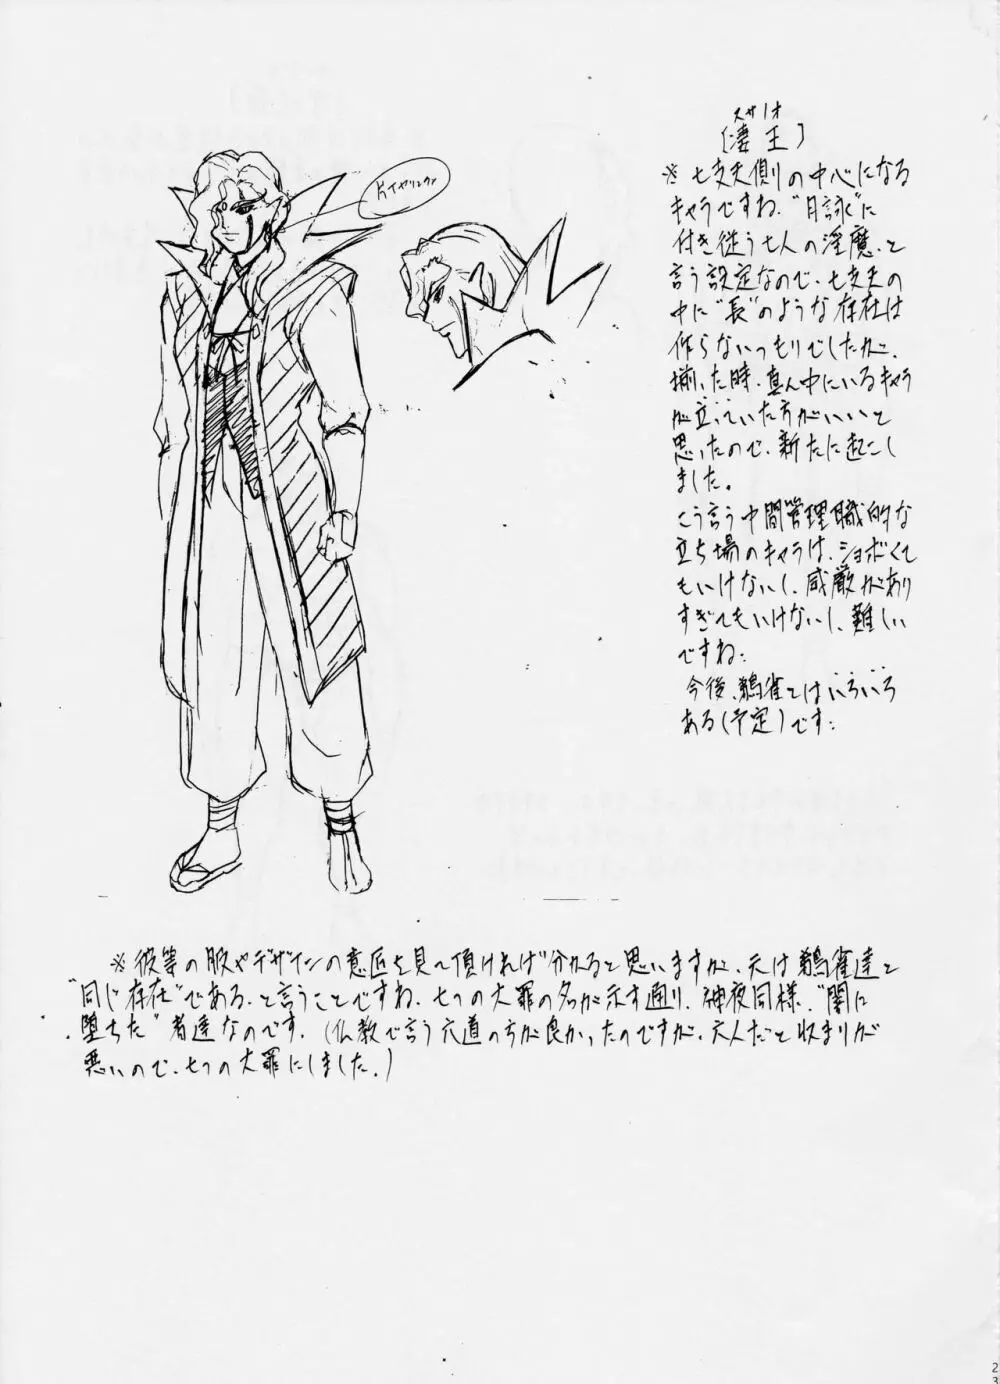 スサノオ
[凄王]
※七支夫側の中心になる
キャラですね。"月詠"に
付き従う七人の淫魔、と
言う設定なので、七支夫の
中に"長"のような存在は
作らないつもりでしたが、
揃った時、真ん中にいるキャラ
が立っていた方がいいと
思ったので、新たに起こし
ました。
こう言う中間管理職的な
立ち場のキャラは、ショボくて
もいけないし、威厳があり
すぎてもいけないし、難しい
ですね。
今後、鵺雀とはいろいろ
ある(予定)です。
片イヤリング
※彼等の服やデザインの意匠を見て頂ければ分かると思いますが、元は鵺雀達と
"同じ存在"である、と言うことですね。七つの大罪の名が示す通り、神夜同様、"闇に
堕ちた"者達なのです。(仏教で言う六道の方が良かったのですが、六人だと収まりが
悪いので、七つの大罪にしました。)
23